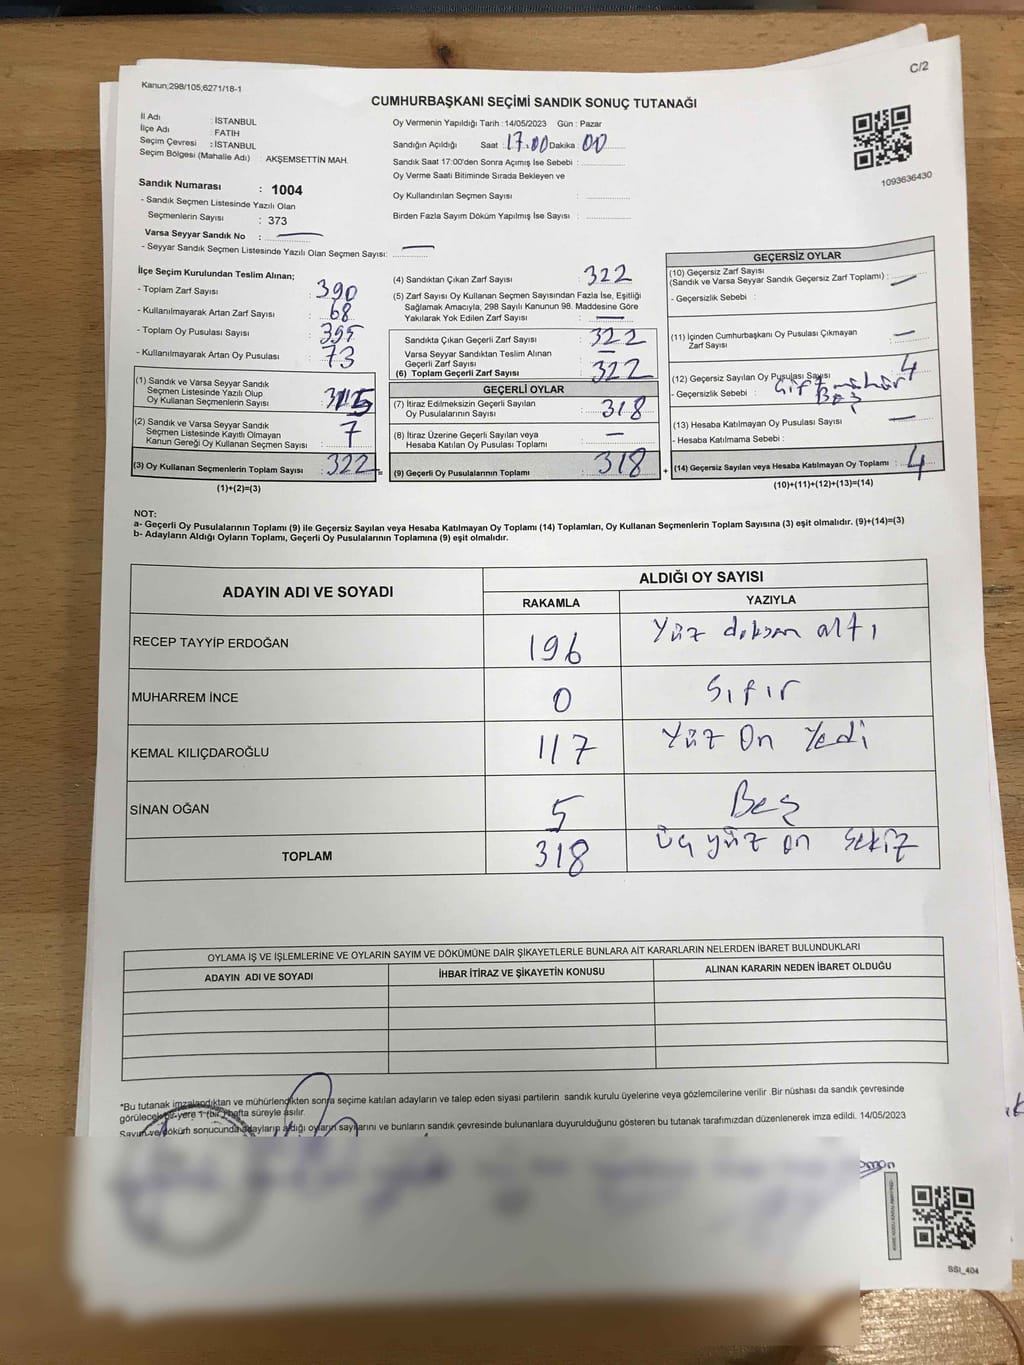 C/2
Kanun;298/105;6271/18-1
CUMHURBAŞKANI SEÇİMİ SANDIK SONUÇ TUTANAĞI
İl Adı : İSTANBUL
İlçe Adı : FATİH
Seçim Çevresi : İSTANBUL
Seçim Bölgesi (Mahalle Adı) : AKŞEMSETTİN MAH.
Sandık Numarası : 1004
- Sandık Seçmen Listesinde Yazılı Olan
Seçmenlerin Sayısı : 373
Varsa Seyyar Sandık No :
- Seyyar Sandık Seçmen Listesinde Yazılı Olan Seçmen Sayısı:
Oy Vermenin Yapıldığı Tarih : 14/05/2023 Gün : Pazar
Sandığın Açıldığı Saat : 17.00 Dakika : 00
Sandık Saat 17:00'den Sonra Açımış İse Sebebi :
Oy Verme Saati Bitiminde Sırada Bekleyen ve
Oy Kullandırılan Seçmen Sayısı :
Birden Fazla Sayım Döküm Yapılmış İse Sayısı :
1093636430
İlçe Seçim Kurulundan Teslim Alınan;
- Toplam Zarf Sayısı : 390
- Kullanılmayarak Artan Zarf Sayısı : 68
- Toplam Oy Pusulası Sayısı : 395
- Kullanılmayarak Artan Oy Pusulası : 73
(1) Sandık ve Varsa Seyyar Sandık
Seçmen Listesinde Yazılı Olup
Oy Kullanan Seçmenlerin Sayısı : 315
(2) Sandık ve Varsa Seyyar Sandık
Seçmen Listesinde Kayıtlı Olmayan
Kanun Gereği Oy Kullanan Seçmen Sayısı : 7
(3) Oy Kullanan Seçmenlerin Toplam Sayısı : 322
(1)+(2)=(3)
=
(4) Sandıktan Çıkan Zarf Sayısı : 322
(5) Zarf Sayısı Oy Kullanan Seçmen Sayısından Fazla İse, Eşitliği
Sağlamak Amacıyla, 298 Sayılı Kanunun 98. Maddesine Göre
Yakılarak Yok Edilen Zarf Sayısı : —
Sandıkta Çıkan Geçerli Zarf Sayısı : 322
Varsa Seyyar Sandıktan Teslim Alınan
Geçerli Zarf Sayısı : —
(6) Toplam Geçerli Zarf Sayısı : 322
GEÇERLİ OYLAR
(7) İtiraz Edilmeksizin Geçerli Sayılan
Oy Pusulalarının Sayısı : 318
(8) İtiraz Üzerine Geçerli Sayılan veya
Hesaba Katılan Oy Pusulası Toplamı : —
(9) Geçerli Oy Pusulalarının Toplamı : 318
+
GEÇERSİZ OYLAR
(10) Geçersiz Zarf Sayısı
(Sandık ve Varsa Seyyar Sandık Geçersiz Zarf Toplamı) : —
- Geçersizlik Sebebi :
(11) İçinden Cumhurbaşkanı Oy Pusulası Çıkmayan
Zarf Sayısı : —
(12) Geçersiz Sayılan Oy Pusulası Sayısı : 4
- Geçersizlik Sebebi : Çift mühür
(13) Hesaba Katılmayan Oy Pusulası Sayısı : —
- Hesaba Katılmama Sebebi :
(14) Geçersiz Sayılan veya Hesaba Katılmayan Oy Toplamı : 4
(10)+(11)+(12)+(13)=(14)
NOT:
a- Geçerli Oy Pusulalarının Toplamı (9) ile Geçersiz Sayılan veya Hesaba Katılmayan Oy Toplamı (14) Toplamları, Oy Kullanan Seçmenlerin Toplam Sayısına (3) eşit olmalıdır. (9)+(14)=(3)
b- Adayların Aldığı Oyların Toplamı, Geçerli Oy Pusulalarının Toplamına (9) eşit olmalıdır.
ADAYIN ADI VE SOYADI
ALDIĞI OY SAYISI
RAKAMLA YAZIYLA
RECEP TAYYİP ERDOĞAN 196 Yüz doksan altı
MUHARREM İNCE 0 Sıfır
KEMAL KILIÇDAROĞLU 117 Yüz On Yedi
SİNAN OĞAN 5 Beş
TOPLAM 318 üç yüz on sekiz
OYLAMA İŞ VE İŞLEMLERİNE VE OYLARIN SAYIM VE DÖKÜMÜNE DAİR ŞİKAYETLERLE BUNLARA AİT KARARLARIN NELERDEN İBARET BULUNDUKLARI
ADAYIN ADI VE SOYADI İHBAR İTİRAZ VE ŞİKAYETİN KONUSU ALINAN KARARIN NEDEN İBARET OLDUĞU
*Bu tutanak imzalandıktan ve mühürlendikten sonra seçime katılan adayların ve talep eden siyasi partilerin sandık kurulu üyelerine veya gözlemcilerine verilir .Bir nüshası da sandık çevresinde
görülecek bir yere 1 (bir) hafta süreyle asılır.
Sayım ve döküm sonucunda adayların aldığı oyların sayılarını ve bunların sandık çevresinde bulunanlara duyurulduğunu gösteren bu tutanak tarafımızdan düzenlenerek imza edildi. 14/05/2023
SSI_404